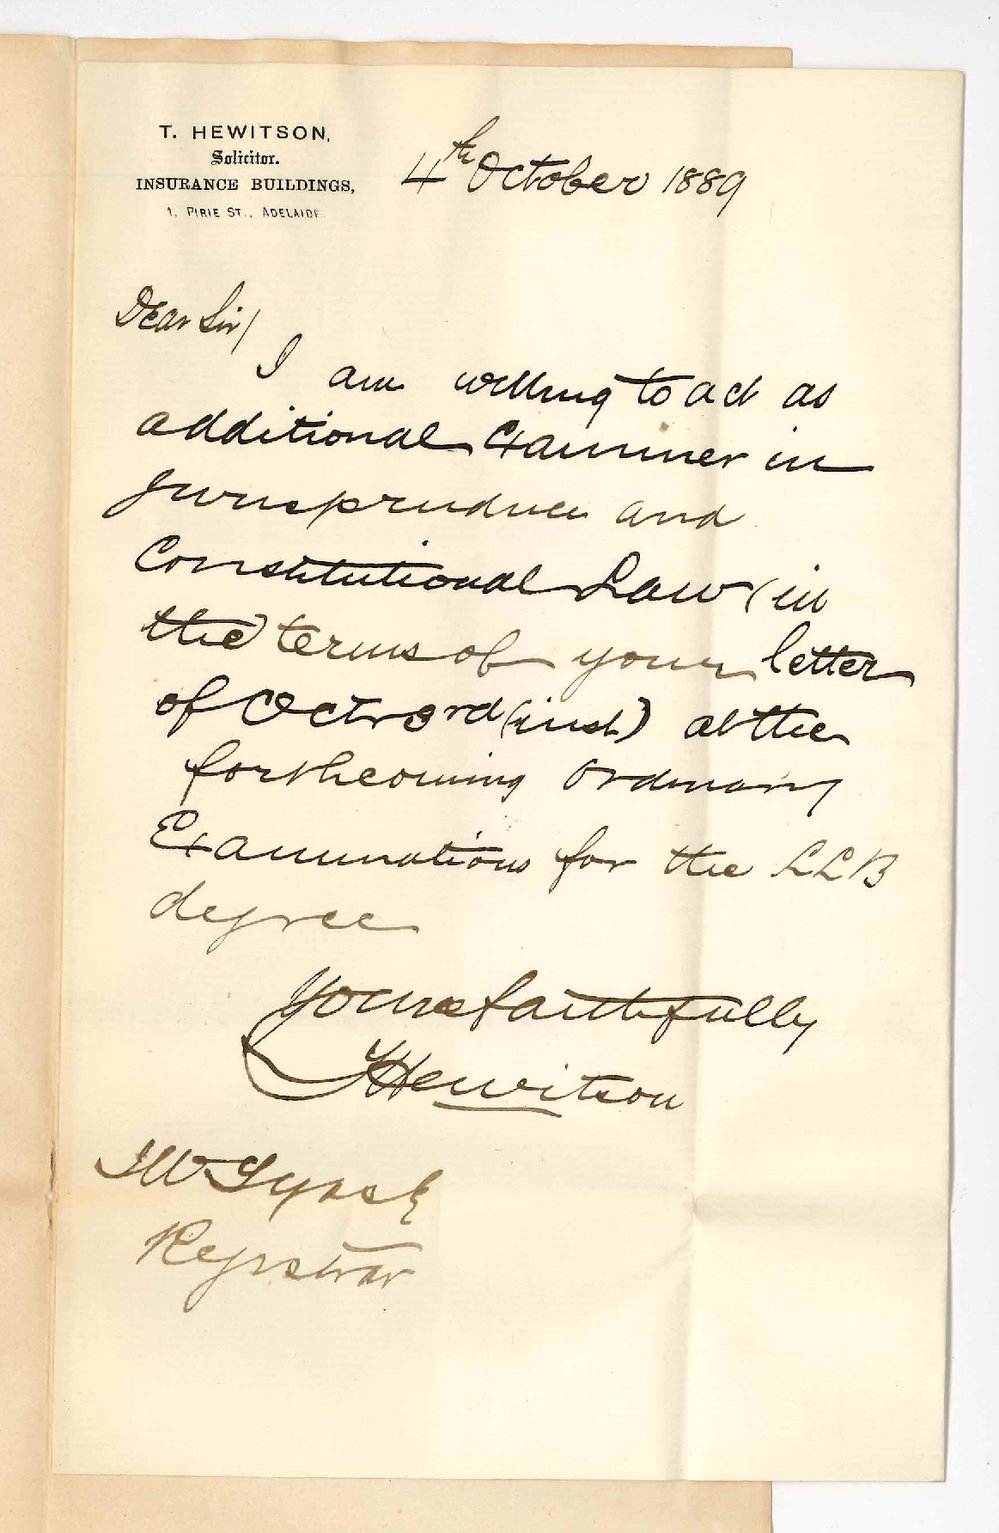 T. HEWITSON,
Solicitor.
INSURANCE BUILDINGS,
1, PIRIE ST., ADELAIDE.
4th October 1889
Dear Sir/
I am willing to act as
additional Examiner in
Jurisprudence and
Constitutional Law (in
the) terms of your letter
of Octr 3rd (inst) at the
forthcoming Ordinary
Examinations for the LLB
degree
Yours faithfully
T Hewitson
JW Tyack
Registrar